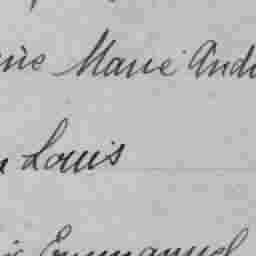 Marie André
Louis
Emmanuel